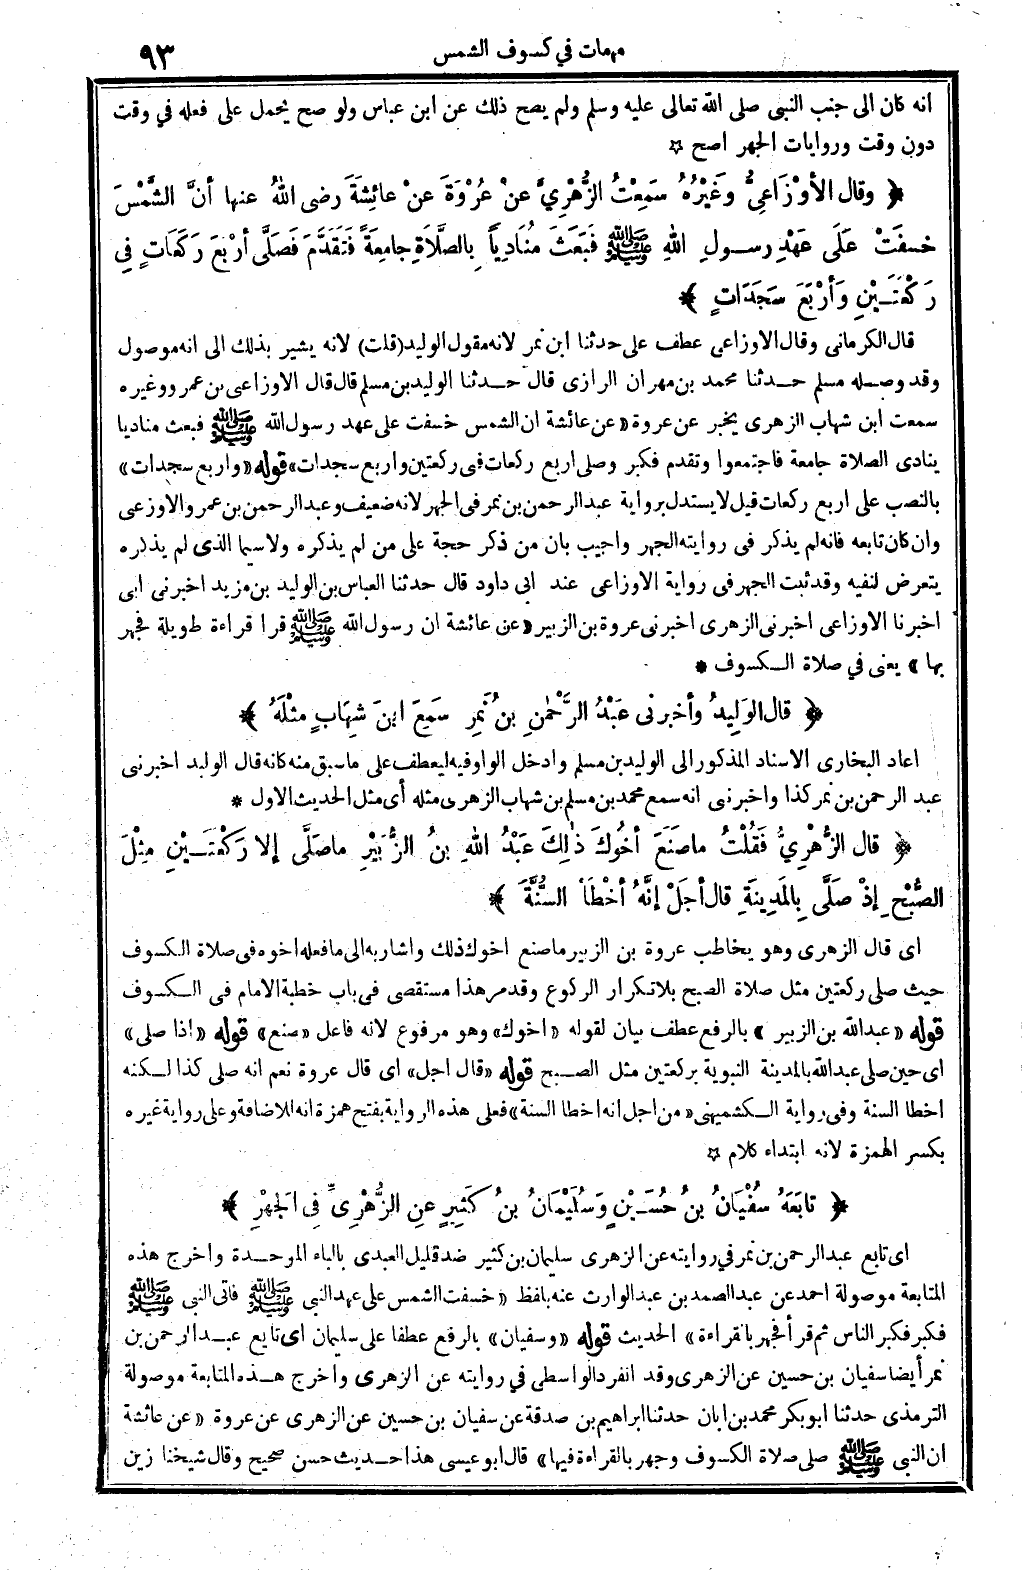 مهمات في كسوف الشمس
٩٣
انه كان الى جنب النبى صلى الله تعالى عليه وسلم ولم يصح ذلك عن ابن عباس ولو صح يحمل على فعله في وقت
دون وقت وروايات الجهر اصح ☆
﴿ وقال الأوْزَاعِىُّ وغَيْرُهُ سَمِعْتُ الزُّهْرِىَّ عنْ عُرْوَةَ عنْ عائِشَةَ رضى اللهُ عنها أنَّ الشَّمْسَ
خسفَتْ عَلَى عَهْدِ رسولِ اللهِ ﷺ فَبَعَثَ مُنَادِياً بِالصَّلاَةِ جامِعَةً فَتَقَدَّمَ فَصَلَّى أرْبَعَ رَكَعَاتٍ فِى
رَكْعَتَيْنِ وَأرْبَعَ سَجَدَاتٍ ﴾
قال الكرمانى وقال الاوزاعى عطف على حدثنا ابن نمر لانه مقول الوليد (قلت) لانه يشير بذلك الى انه موصول
وقد وصله مسلم حدثنا محمد بن مهران الرازى قال حدثنا الوليد بن مسلم قال قال الاوزاعى بن عمرو وغيره
سمعت ابن شهاب الزهرى يخبر عن عروة «عن عائشة ان الشمس خسفت على عهد رسول الله ﷺ فبعث مناديا
ينادى الصلاة جامعة فاجتمعوا وتقدم فكبر وصلى اربع ركعات فى ركعتين واربع سجدات» قوله «واربع سجدات»
بالنصب على اربع ركعات قيل لا يستدل برواية عبد الرحمن بن نمر فى الجهر لانه ضعيف وعبد الرحمن بن عمرو الاوزعى
وان كان تابعه فانه لم يذكر فى روايته الجهر واجيب بان من ذكر حجة على من لم يذكره ولاسيما الذى لم يذكره
يتعرض لنفيه وقد ثبت الجهر فى رواية الاوزاعى عند ابى داود قال حدثنا العباس بن الوليد بن مزيد اخبرنى ابى
اخبرنا الاوزاعى اخبرنى الزهرى اخبرنى عروة بن الزبير «عن عائشة ان رسول الله ﷺ قرا قراءة طويلة فجهر
بها» يعنى في صلاة الكسوف *
﴿ قال الوَلِيدُ وأخبرنى عَبْدُ الرَّحْمٰنِ بنُ نَمِرٍ سَمِعَ ابنَ شِهَابٍ مثْلَهُ ﴾
اعاد البخارى الاسناد المذكور الى الوليد بن مسلم وادخل الواو فيه ليعطف على ما سبق منه كانه قال الوليد اخبرنى
عبد الرحمن بن نمر كذا واخبرنى انه سمع محمد بن مسلم بن شهاب الزهرى مثله أى مثل الحديث الاول *
﴿ قال الزُّهْرِىُّ فَقُلْتُ ماصَنَعَ أخُوكَ ذٰلِكَ عَبْدُ اللهِ بنُ الزُّبَيْرِ ماصَلَّى إلا رَكْعَتَيْنِ مِثْلَ
الصُّبْحِ إذْ صَلَّى بِالمَدِينَةِ قال أجَلْ إنَّهُ أخْطَأ السُّنَّةَ ﴾
اى قال الزهرى وهو يخاطب عروة بن الزبير ما صنع اخوك ذلك واشار به الى ما فعله اخوه فى صلاة الكسوف
حيث صلى ركعتين مثل صلاة الصبح بلا تكرار الركوع وقد مر هذا مستقصى فى باب خطبة الامام فى الكسوف
قوله «عبد الله بن الزبير» بالرفع عطف بيان لقوله «اخوك» وهو مرفوع لانه فاعل «صنع» قوله «اذا صلى»
اى حين صلى عبد الله بالمدينة النبوية بركعتين مثل الصبح قوله «قال اجل» اى قال عروة نعم انه صلى كذا لكنه
اخطا السنة وفى رواية الكشميهنى «من اجل انه اخطا السنة» فعلى هذه الرواية بفتح همزة انه للاضافة وعلى رواية غيره
بكسر الهمزة لانه ابتداء كلام ☆
﴿ تابَعَهُ سُفْيَانُ بنُ حُسَيْنٍ وَسُلَيْمَانُ بنُ كَثِيرٍ عنِ الزُّهْرِىِّ فِى الجَهْرِ ﴾
اى تابع عبد الرحمن بن نمر في روايته عن الزهرى سليمان بن كثير ضد قليل العبدى بالباء الموحدة واخرج هذه
المتابعة موصولة احمد عن عبد الصمد بن عبد الوارث عنه بلفظ «خسفت الشمس على عهد النبى ﷺ فاتى النبى ﷺ
فكبر فكبر الناس ثم قرأ فجهر بالقراءة» الحديث قوله «وسفيان» بالرفع عطفا على سليمان اى تابع عبد الرحمن بن
نمر أيضا سفيان بن حسين عن الزهرى وقد انفرد الواسطى في روايته عن الزهرى واخرج هذه المتابعة موصولة
الترمذى حدثنا ابو بكر محمد بن ابان حدثنا ابراهيم بن صدقة عن سفيان بن حسين عن الزهرى عن عروة «عن عائشة
ان النبى ﷺ صلى صلاة الكسوف وجهر بالقراءة فيها» قال ابو عيسى هذا حديث حسن صحيح وقال شيخنا زين